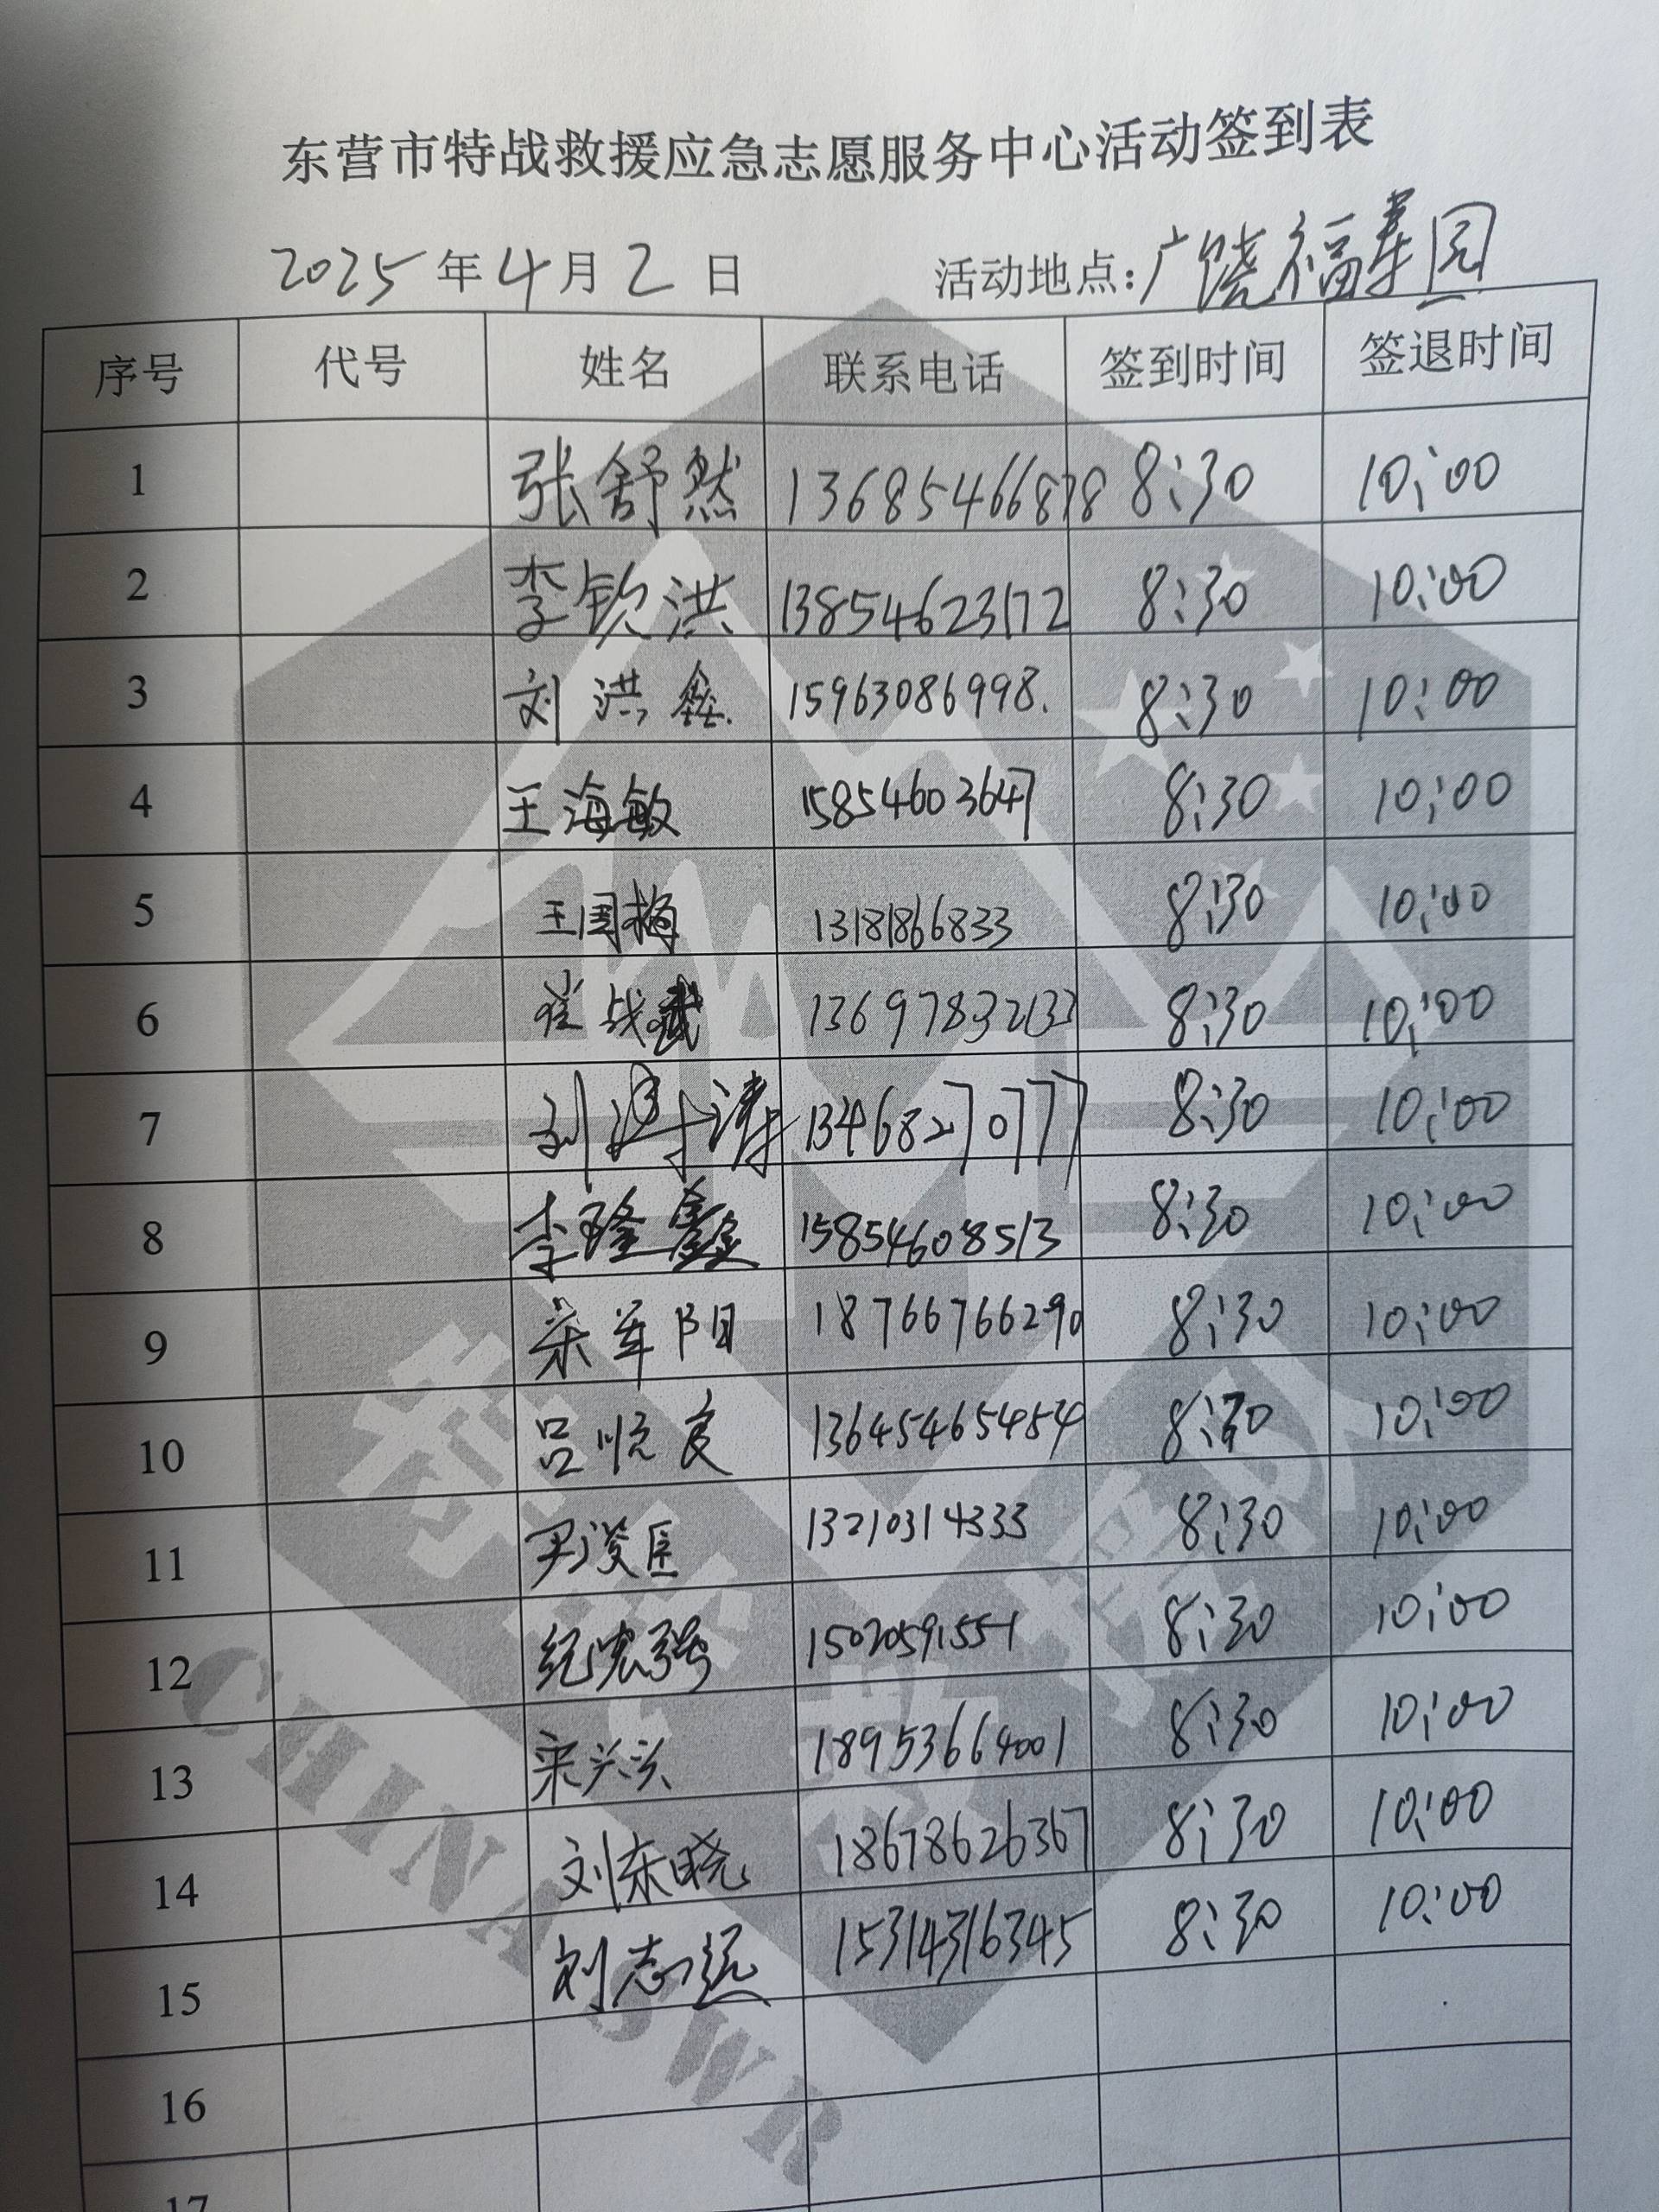 东营市特战救援应急志愿服务中心活动签到表
2025年4月2日 活动地点:广饶福寿园
序号 代号 姓名 联系电话 签到时间 签退时间
1 张舒然 13685466878 8:30 10:00
2 李钦洪 13854623172 8:30 10:00
3 刘洪鑫 15963086998. 8:30 10:00
4 王海敏 15854603647 8:30 10:00
5 王国梅 13181866833 8:30 10:00
6 崔战武 13697832133 8:30 10:00
7 刘 涛 13468270777 8:30 10:00
8 李隆鑫 15854608513 8:30 10:00
9 宋军阳 18766766290 8:30 10:00
10 吕悦良 13645465454 8:30 10:00
11 尹 13210314333 8:30 10:00
12 纪宏强 15020591551 8:30 10:00
13 宋兴兴 18953664001 8:30 10:00
14 刘东晓 18678626367 8:30 10:00
15 刘志远 15314316345 8:30 10:00
16
17
特战救援队
CHINA SWR